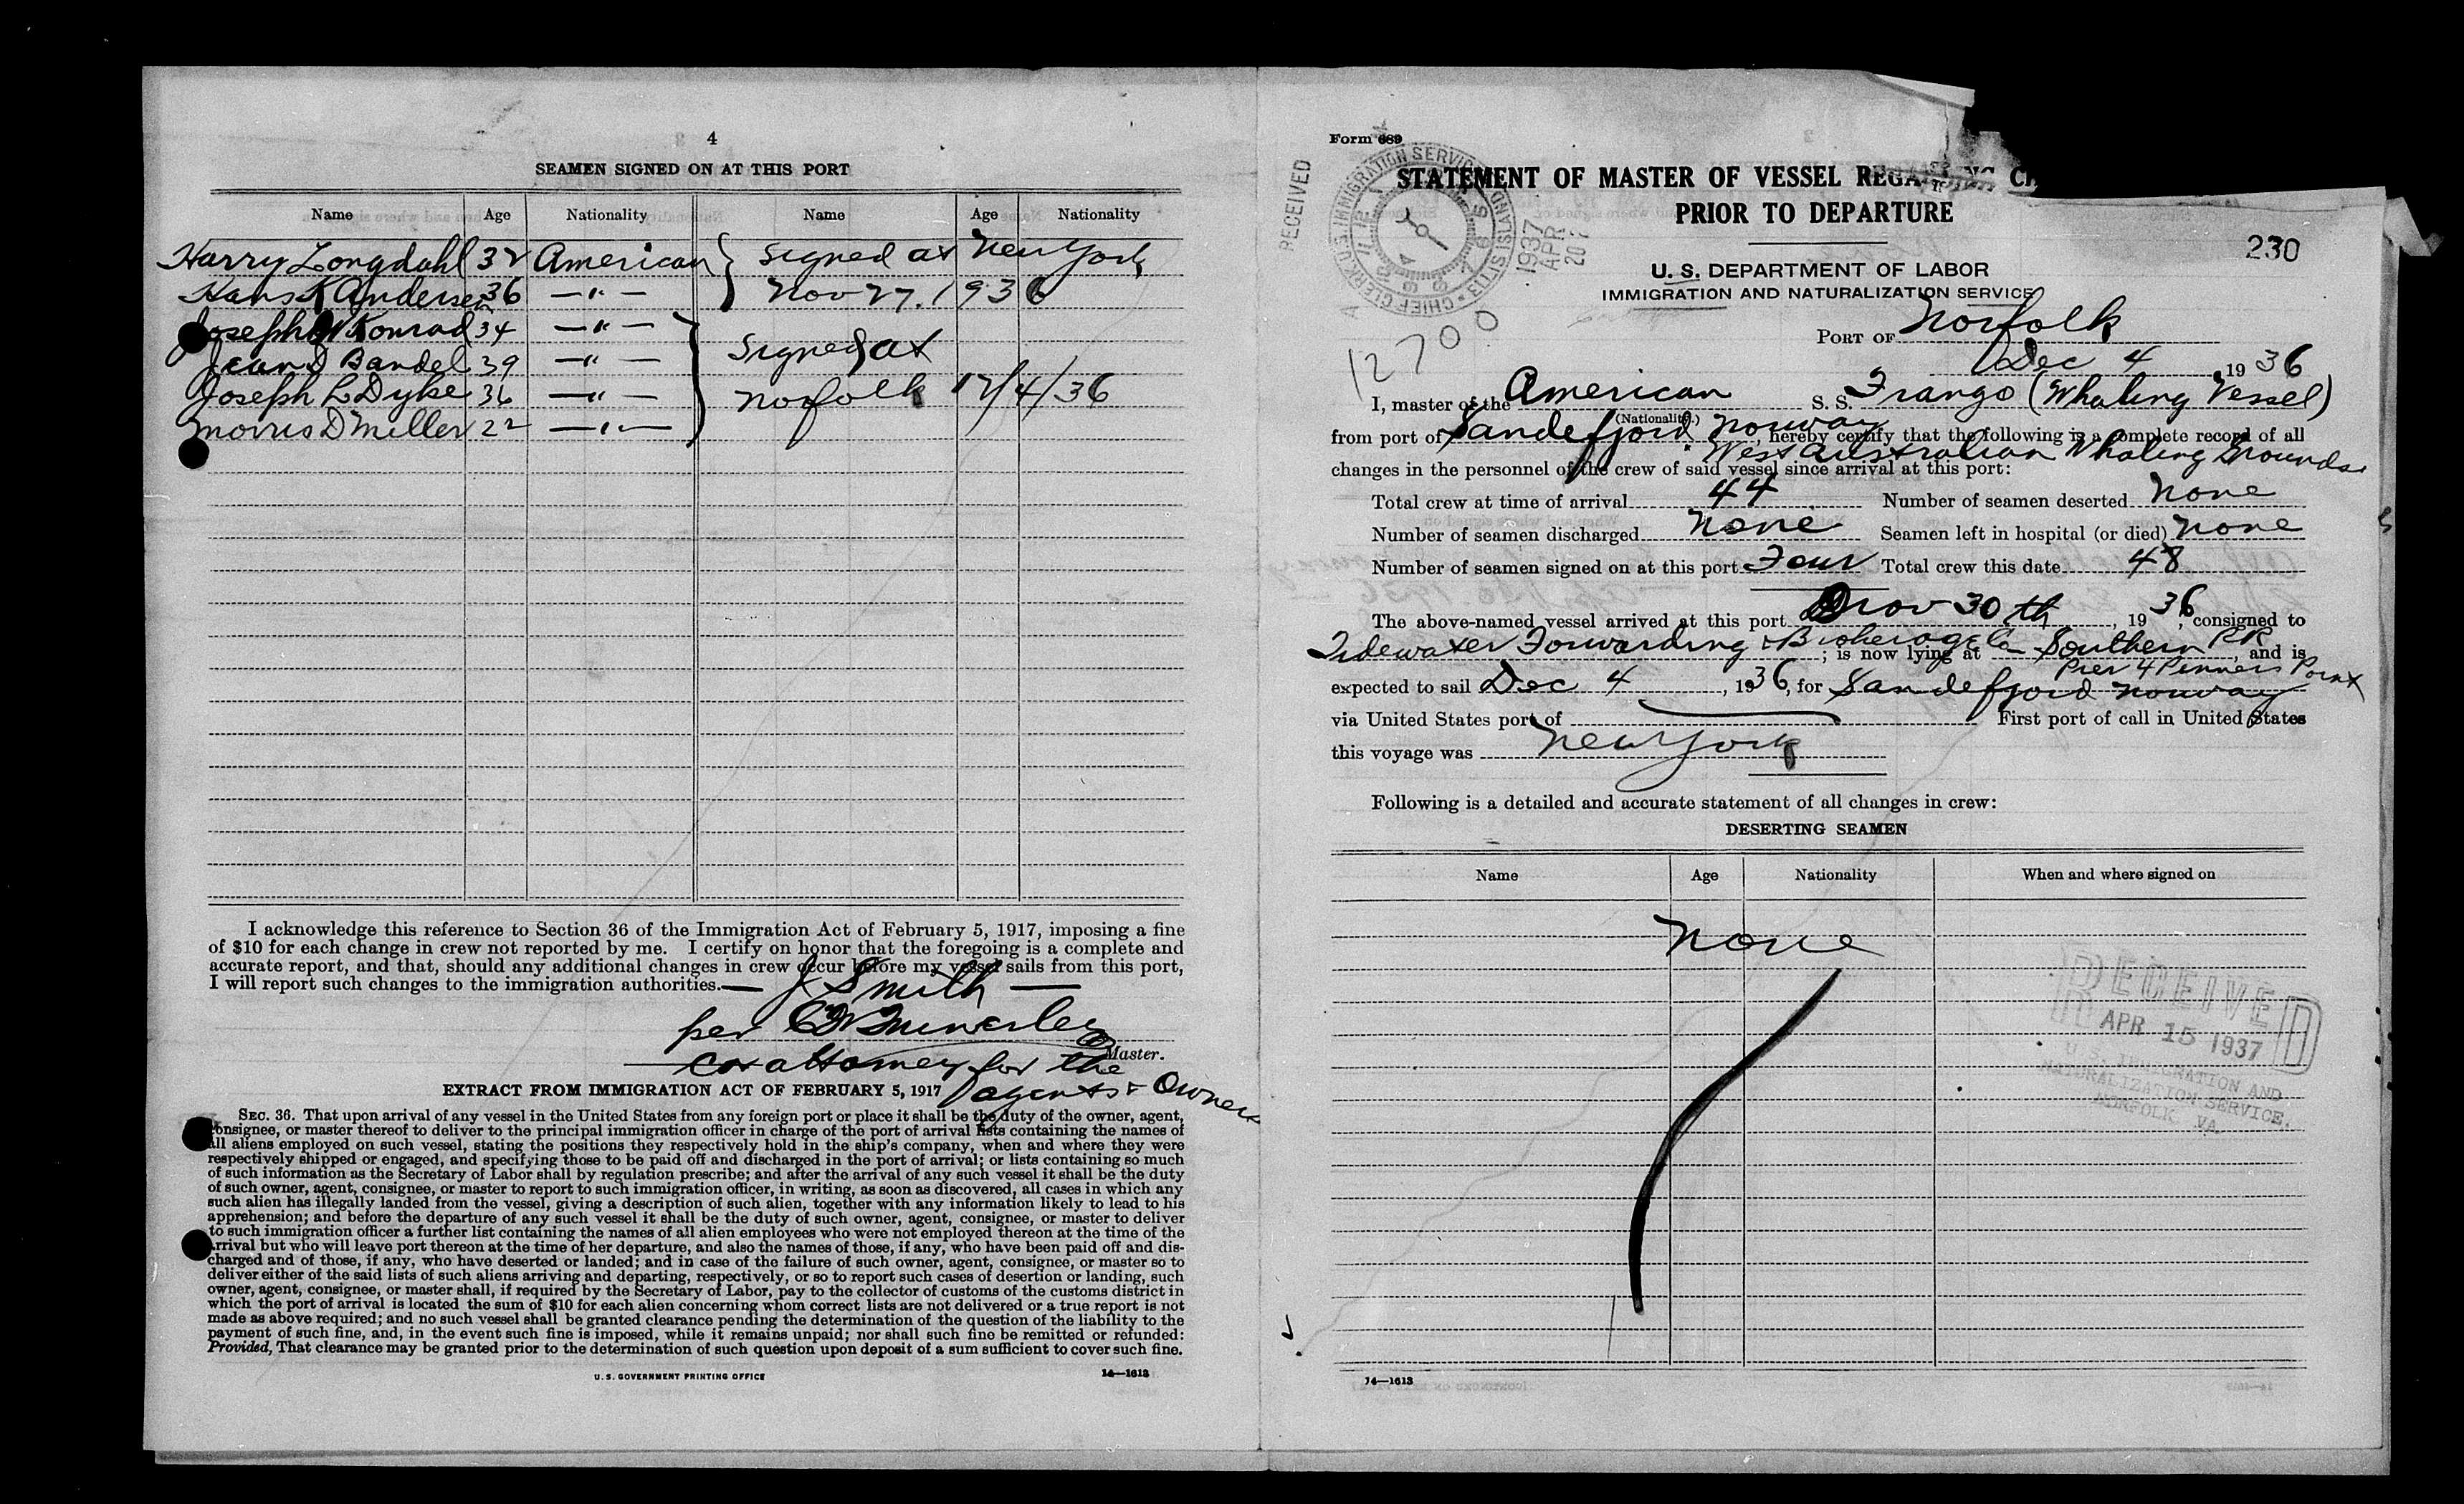 4
SEAMEN SIGNED ON AT THIS PORT
Name Age Nationality Name Age Nationality
Harry Longdahl 32 American } Signed at New York
Hans K Andersen 36 —"— Nov 27. 1936
Joseph W Konrad 34 —"—
Jean D Bandel 39 —"— } Signed at
Joseph L Dyke 36 —"— Norfolk 12/4/36
Morris D Miller 22 —"—
I acknowledge this reference to Section 36 of the Immigration Act of February 5, 1917, imposing a fine
of $10 for each change in crew not reported by me. I certify on honor that the foregoing is a complete and
accurate report, and that, should any additional changes in crew occur before my vessel sails from this port,
I will report such changes to the immigration authorities.— J Smith —
per
Master.
attorney for the
agents & Owners
EXTRACT FROM IMMIGRATION ACT OF FEBRUARY 5, 1917
SEC. 36. That upon arrival of any vessel in the United States from any foreign port or place it shall be the duty of the owner, agent,
consignee, or master thereof to deliver to the principal immigration officer in charge of the port of arrival lists containing the names of
all aliens employed on such vessel, stating the positions they respectively hold in the ship's company, when and where they were
respectively shipped or engaged, and specifying those to be paid off and discharged in the port of arrival; or lists containing so much
of such information as the Secretary of Labor shall by regulation prescribe; and after the arrival of any such vessel it shall be the duty
of such owner, agent, consignee, or master to report to such immigration officer, in writing, as soon as discovered, all cases in which any
such alien has illegally landed from the vessel, giving a description of such alien, together with any information likely to lead to his
apprehension; and before the departure of any such vessel it shall be the duty of such owner, agent, consignee, or master to deliver
to such immigration officer a further list containing the names of all alien employees who were not employed thereon at the time of the
arrival but who will leave port thereon at the time of her departure, and also the names of those, if any, who have been paid off and dis-
charged and of those, if any, who have deserted or landed; and in case of the failure of such owner, agent, consignee, or master so to
deliver either of the said lists of such aliens arriving and departing, respectively, or so to report such cases of desertion or landing, such
owner, agent, consignee, or master shall, if required by the Secretary of Labor, pay to the collector of customs of the customs district in
which the port of arrival is located the sum of $10 for each alien concerning whom correct lists are not delivered or a true report is not
made as above required; and no such vessel shall be granted clearance pending the determination of the question of the liability to the
payment of such fine, and, in the event such fine is imposed, while it remains unpaid; nor shall such fine be remitted or refunded:
Provided, That clearance may be granted prior to the determination of such question upon deposit of a sum sufficient to cover such fine.
U. S. GOVERNMENT PRINTING OFFICE 14—1613
Form 689
STATEMENT OF MASTER OF VESSEL REGARDING
PRIOR TO DEPARTURE
RECEIVED
CHIEF CLERK U.S. IMMIGRATION SERVICE
1937 APR 20
12700
230
U. S. DEPARTMENT OF LABOR
IMMIGRATION AND NATURALIZATION SERVICE
PORT OF Norfolk
Dec 4 1936
I, master of the American S. S. Frango (Whaling Vessel)
(Nationality.)
from port of Sandefjord Norway, hereby certify that the following is a complete record of all
West Australian Whaling Grounds
changes in the personnel of the crew of said vessel since arrival at this port:
Total crew at time of arrival 44 Number of seamen deserted None
Number of seamen discharged None Seamen left in hospital (or died) None
Number of seamen signed on at this port Four Total crew this date 48
The above-named vessel arrived at this port Nov 30th, 1936, consigned to
Tidewater Forwarding & Brokerage Co; is now lying at Southern RR, and is
Pier 4 Pinners Point
expected to sail Dec 4, 1936, for Sandefjord Norway
via United States port of First port of call in United States
this voyage was New York
Following is a detailed and accurate statement of all changes in crew:
DESERTING SEAMEN
Name Age Nationality When and where signed on
None
RECEIVED
APR 15 1937
U. S. IMMIGRATION AND
NATURALIZATION SERVICE,
NORFOLK VA.
14—1613